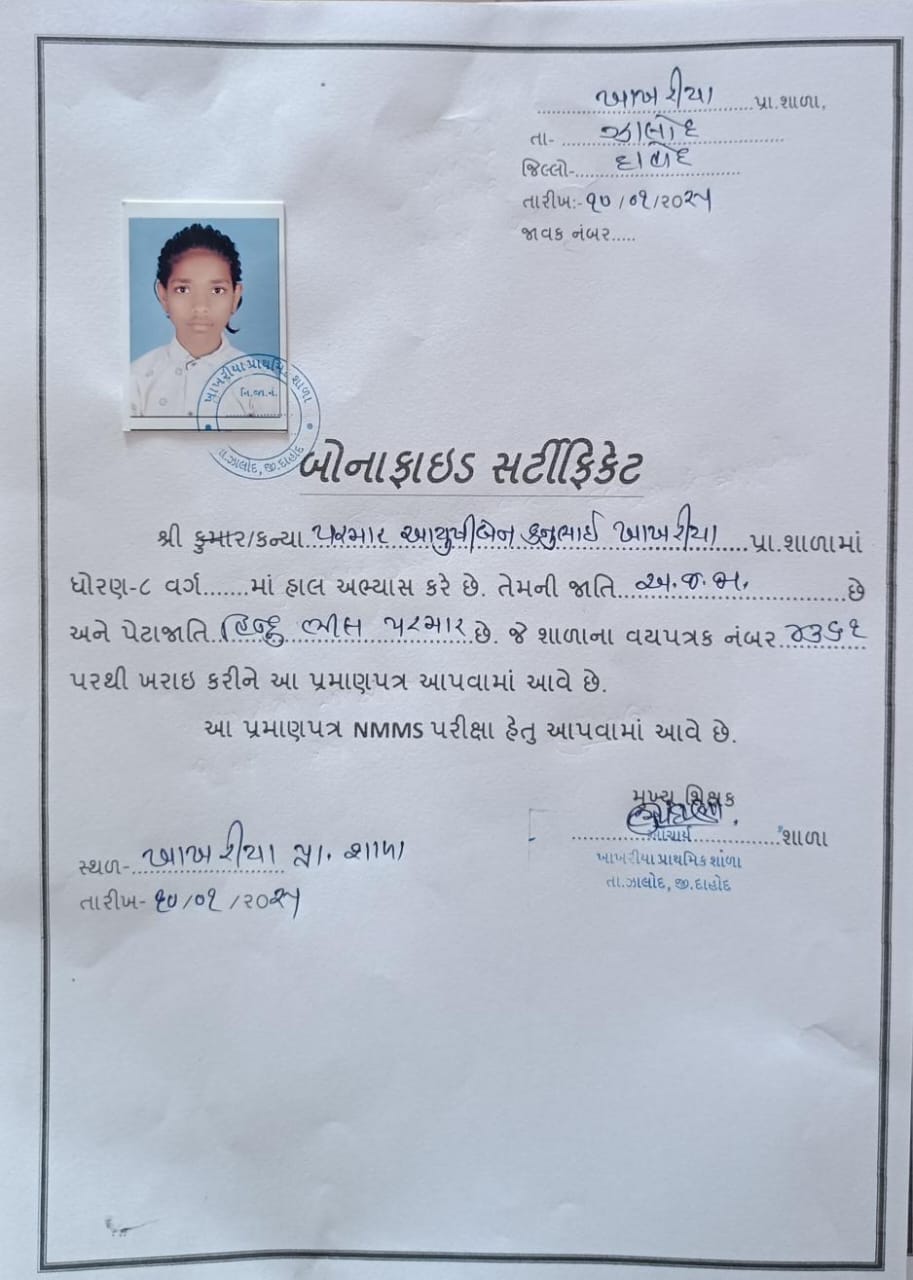 ખાખરીયા પ્રા.શાળા,
તા- ઝાલોદ
જિલ્લો- દાહોદ
તારીખ:- ૧૦/૦૧/૨૦૨૫
જાવક નંબર.....
ખાખરીયા પ્રાથમિક શાળા
નિ.જા.નં.
તા.ઝાલોદ, જી.દાહોદ
બોનાફાઇડ સર્ટીફિકેટ
શ્રી કુમાર/કન્યા પરમાર આયુષીબેન કનુભાઈ ખાખરીયા પ્રા.શાળામાં
ધોરણ-૮ વર્ગ.......માં હાલ અભ્યાસ કરે છે. તેમની જાતિ અ.જ.જા. છે
અને પેટાજાતિ હિન્દુ ભીલ પરમાર છે. જે શાળાના વયપત્રક નંબર ૪૩૬૧
પરથી ખરાઇ કરીને આ પ્રમાણપત્ર આપવામાં આવે છે.
આ પ્રમાણપત્ર NMMS પરીક્ષા હેતુ આપવામાં આવે છે.
મુખ્ય શિક્ષક
આચાર્ય શાળા
ખાખરીયા પ્રાથમિક શાળા
તા.ઝાલોદ, જી.દાહોદ
સ્થળ- ખાખરીયા પ્રા. શાળા
તારીખ- ૧૦/૦૧/૨૦૨૫